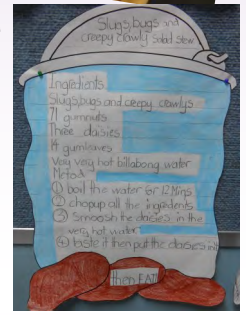 Slugs, bugs and
creepy crawly salad stew
Ingredients
Slugs, bugs and creepy crawlys
71 gumnuts
Three daisies
14 gumleaves
Very very hot billabong water
Metod
① boil the water for 12 Mins
② chop up all the ingredients
③ Smoosh the daisies in the
very hot water
④ taste it then put the daisies in it
then EAT!